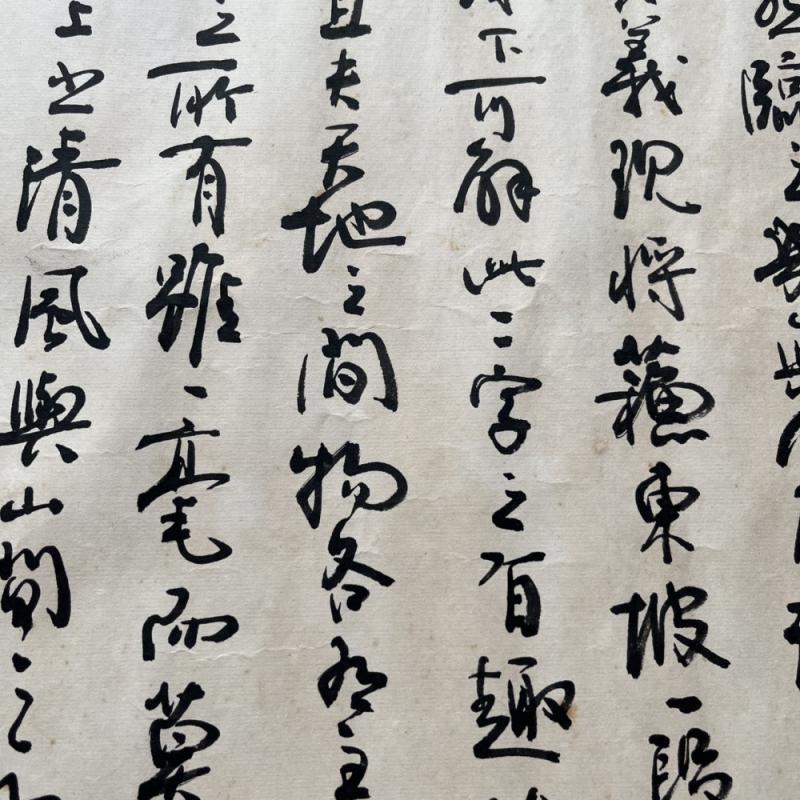 臨之
義現將蘇東坡一段
下可解此二字之旨趣
且夫天地之間物各有主
之所有雖一毫而莫
上之清風與山間之